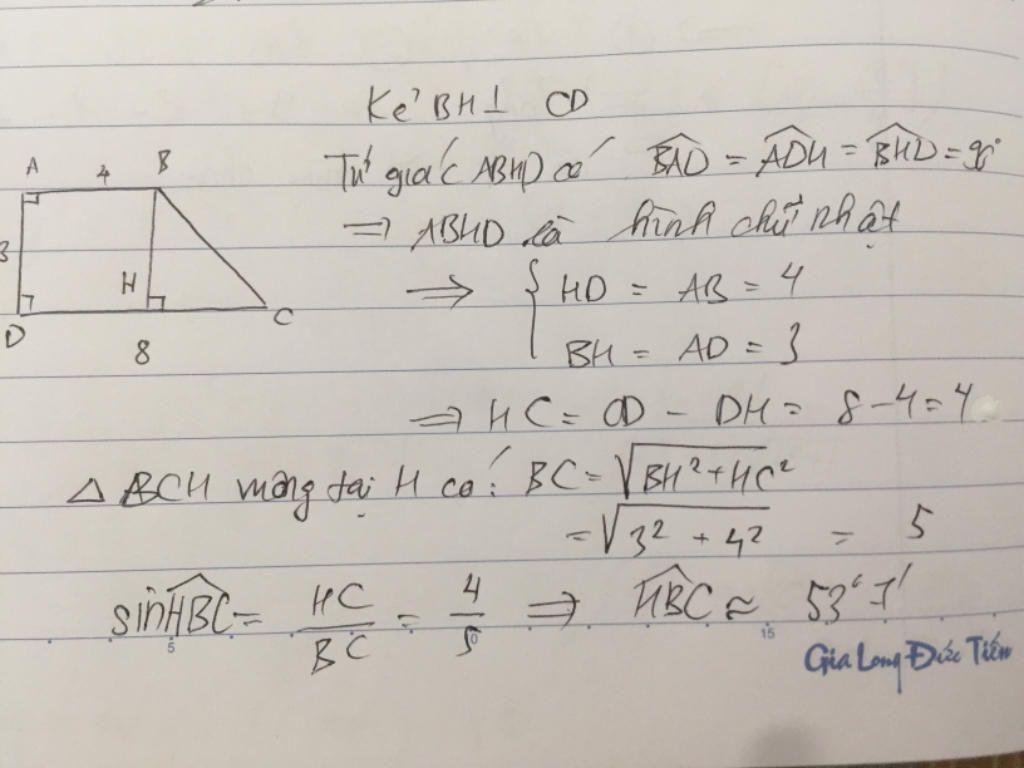 Kẻ BH ⊥ CD
A 4 B
Tứ giác ABHD có BAD = ADH = BHD = 90°
⇒ ABHD là hình chữ nhật
3
H
⇒ { HD = AB = 4
D
C
BH = AD = 3
8
⇒ HC = CD - DH = 8 - 4 = 4
△ BCH vuông tại H có: BC = √BH² + HC²
= √3² + 4² = 5
sinHBC = HC/BC = 4/5 ⇒ HBC ≈ 53°7'
5 10 15
Gia Long Đức Tiến